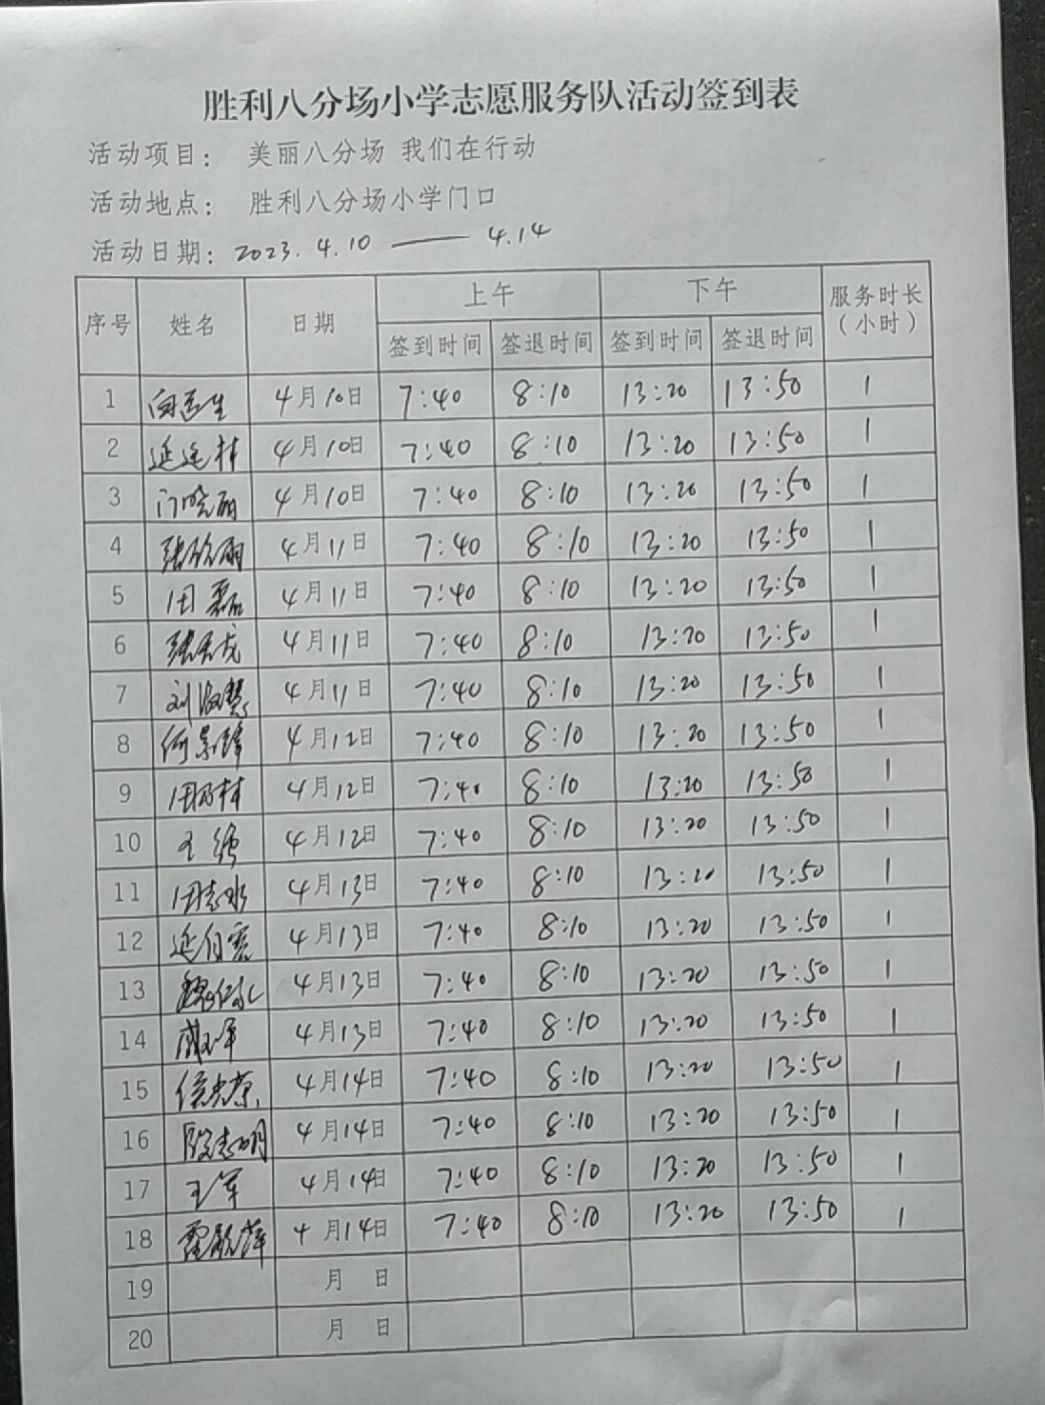 胜利八分场小学志愿服务队活动签到表
活动项目： 美丽八分场 我们在行动
活动地点： 胜利八分场小学门口
活动日期：2023.4.10 —— 4.14
序号 姓名 日期 上午 下午 服务时长（小时）
签到时间 签退时间 签到时间 签退时间
1 4月10日 7:40 8:10 13:20 13:50 1
2 4月10日 7:40 8:10 13:20 13:50 1
3 门晓丽 4月10日 7:40 8:10 13:20 13:50 1
4 4月11日 7:40 8:10 13:20 13:50 1
5 田磊 4月11日 7:40 8:10 13:20 13:50 1
6 4月11日 7:40 8:10 13:20 13:50 1
7 刘淑慧 4月11日 7:40 8:10 13:20 13:50 1
8 4月12日 7:40 8:10 13:20 13:50 1
9 4月12日 7:40 8:10 13:20 13:50 1
10 4月12日 7:40 8:10 13:20 13:50 1
11 田志水 4月13日 7:40 8:10 13:20 13:50 1
12 4月13日 7:40 8:10 13:20 13:50 1
13 4月13日 7:40 8:10 13:20 13:50 1
14 4月13日 7:40 8:10 13:20 13:50 1
15 4月14日 7:40 8:10 13:20 13:50 1
16 段志明 4月14日 7:40 8:10 13:20 13:50 1
17 王军 4月14日 7:40 8:10 13:20 13:50 1
18 4月14日 7:40 8:10 13:20 13:50 1
19 月 日
20 月 日